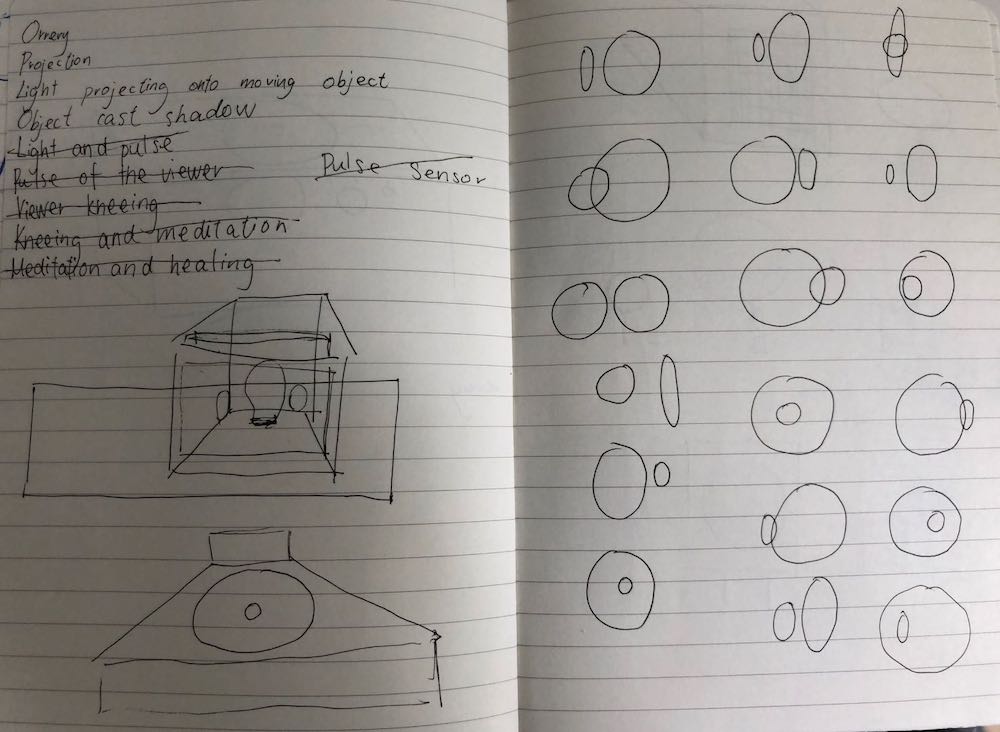 Orrery
Projection
Light projecting onto moving object
Object cast shadow
Light and pulse
Pulse of the viewer
Pulse Sensor
Viewer kneeing
Kneeing and meditation
Meditation and healing